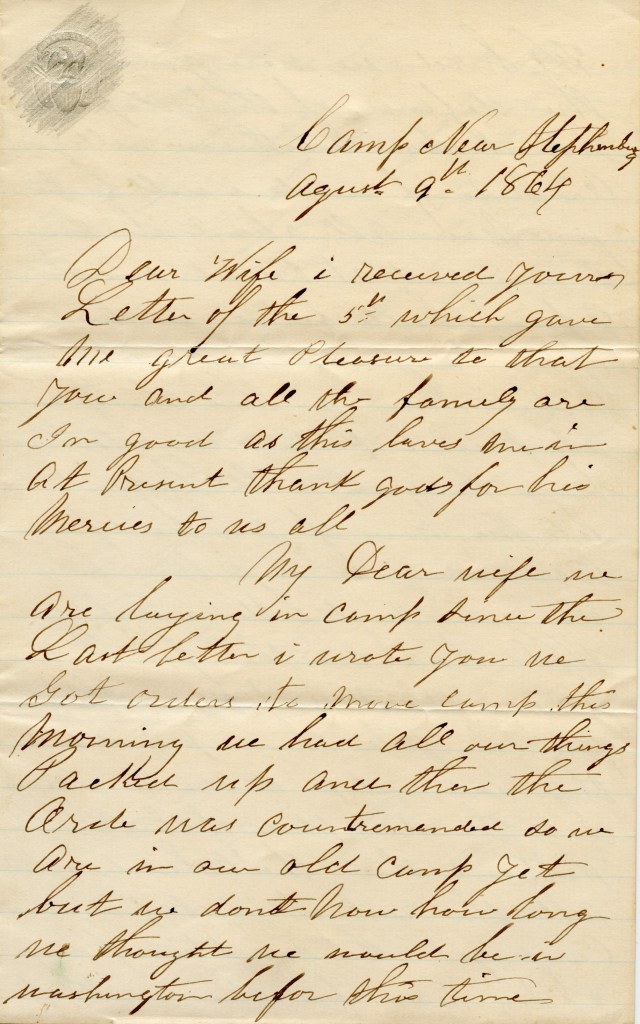 Camp Near Stephenburg
Agust 9th 1864
Dear Wife i received yours
Letter of the 5th which gave
me great Pleasure to that
you and all the family are
In good as this laves me in
At Present thank gods for his
Mercies to us all
My Dear wife we
Are laying in camp since the
Last letter i wrote you we
Got orders to move camp this
Morning we had all our things
Packed up and then the
Orde was countremanded so we
Are in our old camp yet
but we dont now how long
we thought we would be in
washington befor this time